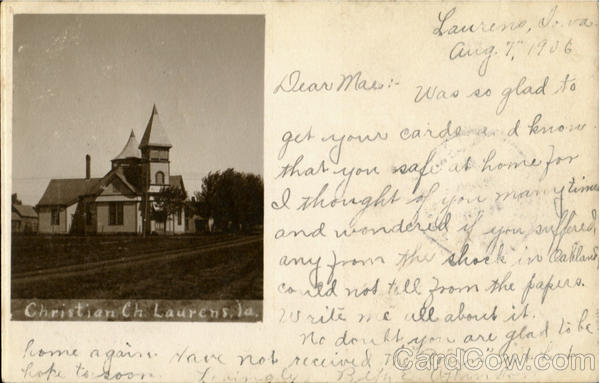 Laurens, Iowa.
Aug. 7, 1906
Dear Mae:- Was so glad to
get your cards and know
that you safe at home for
I thought of you many times
and wondered if you suffered
any from the shock in Oakland,
could not tell from the papers.
Write me all about it.
No doubt you are glad to be
home again. Have not received
hope to soon. Lovingly Beth
Christian Ch. Laurens, Ia.
CardCow.com